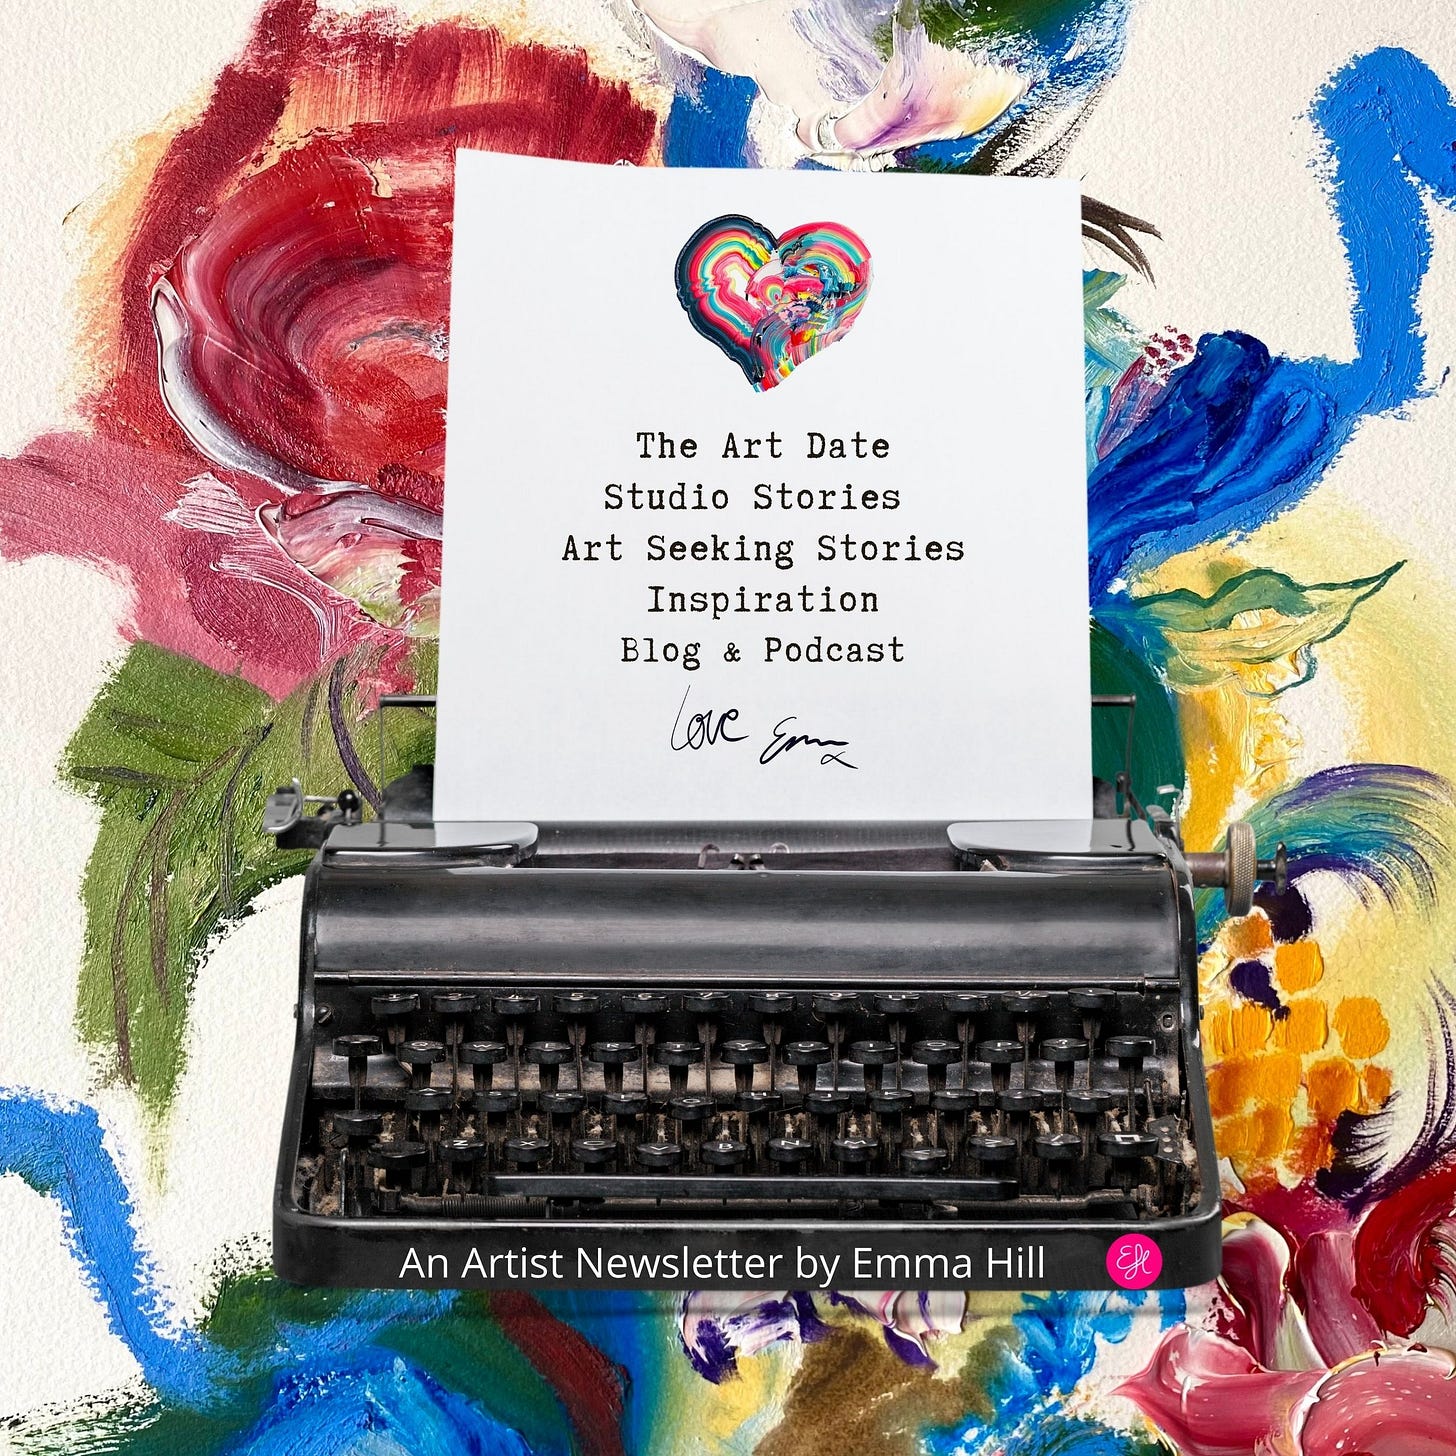 The Art Date
Studio Stories
Art Seeking Stories
Inspiration
Blog & Podcast
Love Emma x
An Artist Newsletter by Emma Hill
EH